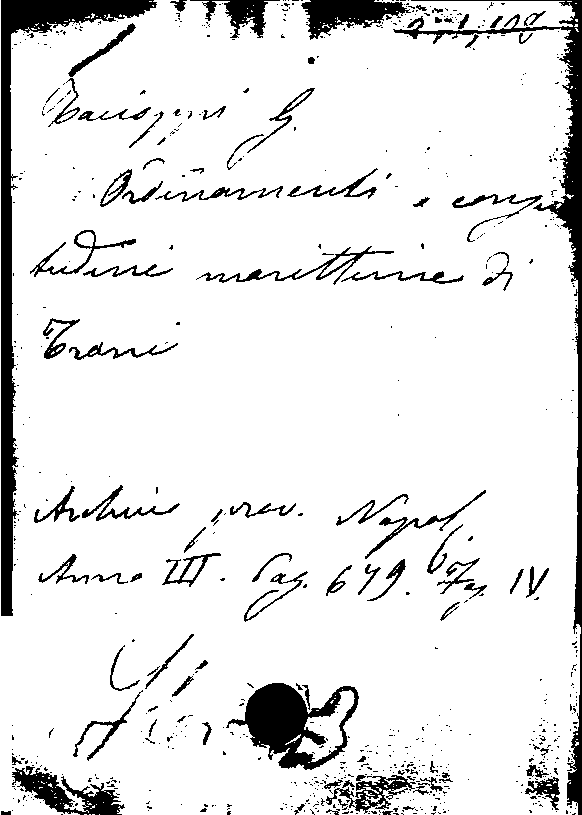 Racioppi G.
Ordinamenti e consue
tudini marittime di
Trani
Archivio prov. Napol.
Anno III. Pag. 679. Fas. IV.